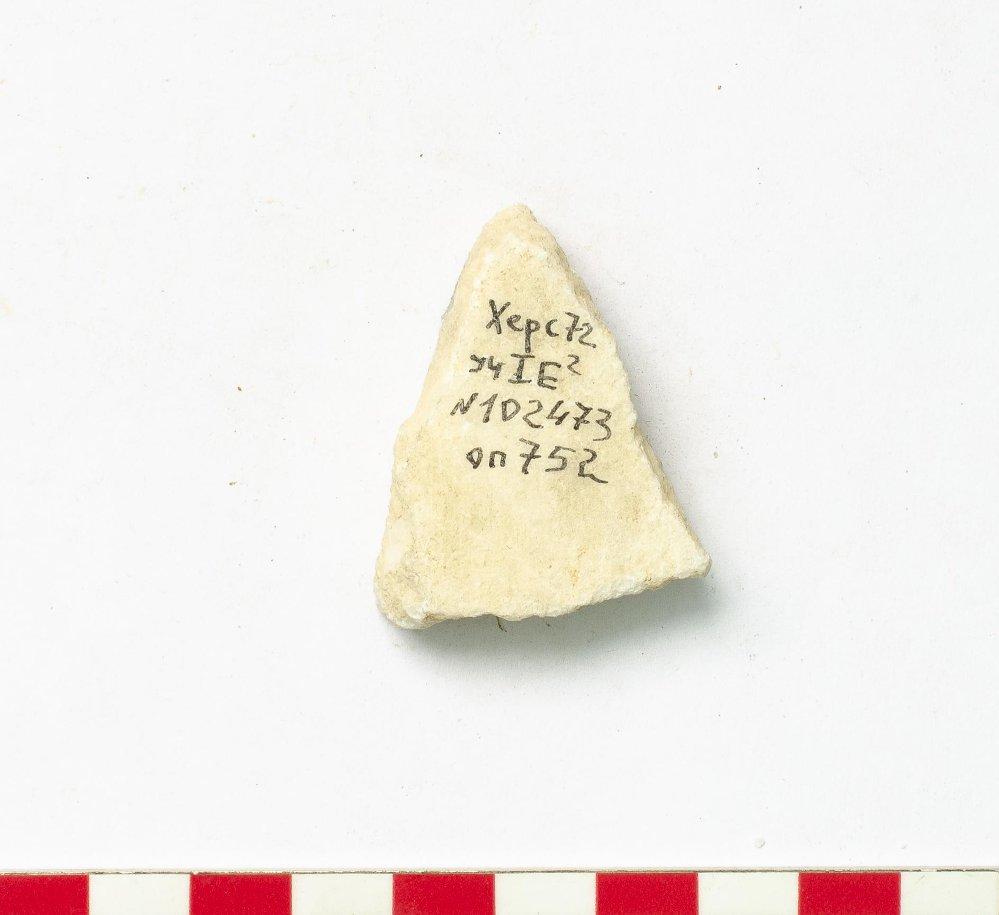 Херс72
уч IE²
N1D2473
оп752